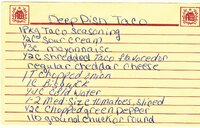 Deep Dish Taco
1 Pkg Taco Seasoning
1/2c sour cream
1/3c mayonnaise
1/2c shredded Taco flavored or
regular cheddar cheese
1T chopped onion
1c Bisquick
1/4c cold water
1-2 Med size tomatoes, sliced
1/2c Chopped green pepper
1lb ground chuck or round